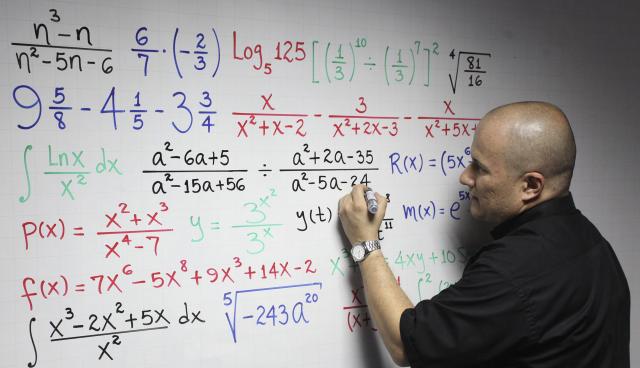 (n³ - n)/(n² - 5n - 6)   6/7 · (-2/3)   Log₅125   [(1/3)¹⁰ ÷ (1/3)⁷]²   ⁴√(81/16)
9 5/8 - 4 1/5 - 3 3/4   x/(x² + x - 2) - 3/(x² + 2x - 3) - x/(x² + 5x +
∫ Lnx/x² dx   (a² - 6a + 5)/(a² - 15a + 56) ÷ (a² + 2a - 35)/(a² - 5a - 24)   R(x) = (5x⁶
P(x) = (x² + x³)/(x⁴ - 7)   y = 3^(x²)/3^x   y(t)   t¹¹   m(x) = e^(5x
f(x) = 7x⁶ - 5x⁸ + 9x³ + 14x - 2   x³   = 4xy + 10
∫ (x³ - 2x² + 5x)/x² dx   ⁵√(-243a²⁰)   (x+   ∫²